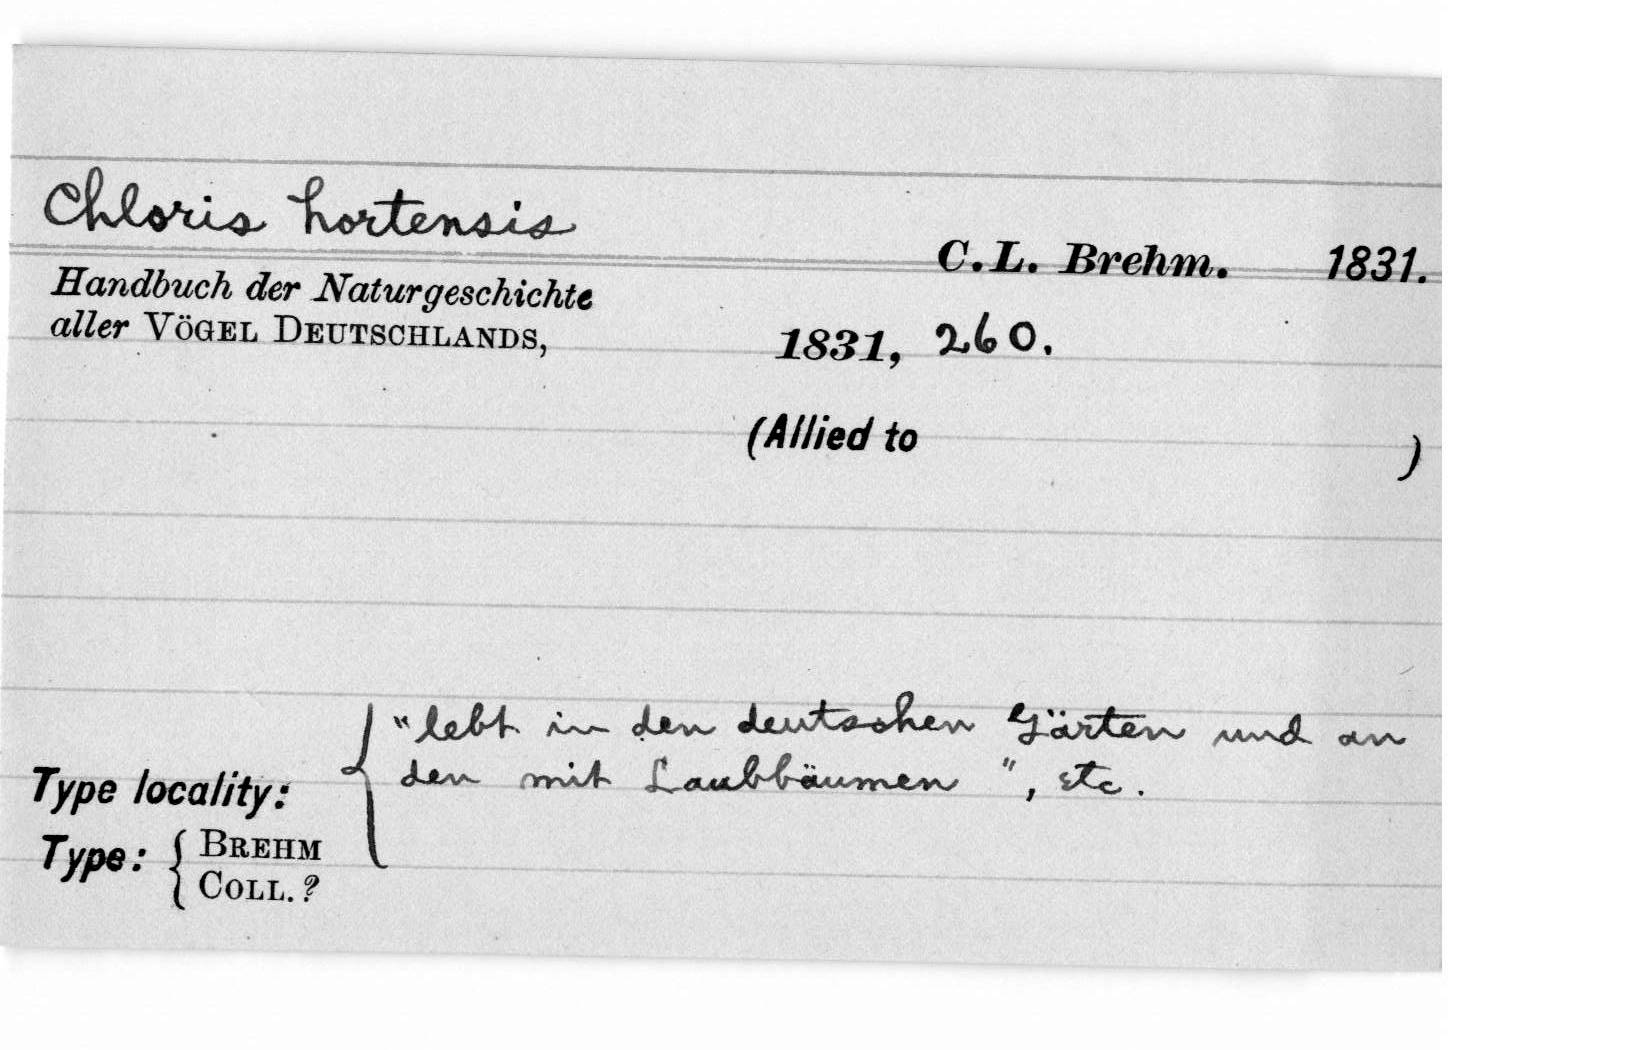 Chloris hortensis
C.L. Brehm. 1831.
Handbuch der Naturgeschichte
aller VÖGEL DEUTSCHLANDS,
1831, 260.
(Allied to )
"lebt in den deutschen Gärten und an
den mit Laubbäumen", etc.
Type locality:
Type: { BREHM
COLL.?